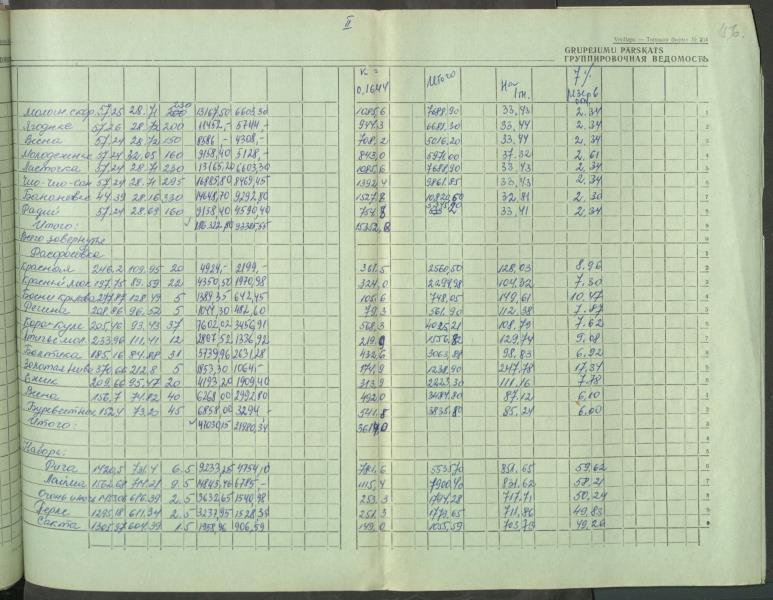 II
Veidlapa — Типовая форма № 214
GRUPEJUMU PĀRSKATS
ГРУППИРОВОЧНАЯ ВЕДОМОСТЬ
К = 0,1644 Итого На 1 тн. 7%
57,25 28.71 13167,50 6603,30 1085,6 7688,90 33,43 2,34
Ягодные 57,26 28,72 200 11452,- 5744,- 944,3 6681,30 33,44 2,34
Весна 57,24 28,72 150 8586,- 4308,- 708,2 5016,20 33,44 2,34
57,24 32,05 160 9158,40 5128,- 843,0 5971,00 37,32 2,61
Ласточка 57,24 28,71 230 13165,20 6603,30 1085,6 7688,90 33,43 2,34
Чио-Чио-сан 57,24 28,71 295 16885,80 8469,45 1392,4 9861,85 33,43 2,34
44,39 28,16 330 14648,70 9292,80 1527,8 32,81 2,30
Радий 57,24 28,69 160 9158,40 4590,40 754,8 33,41 2,34
Итого: 15352,8
Всего завернутые
Фасовка
246,2 109,95 20 4924,- 2199,- 361,5 2560,50 128,03 8,96
197,75 89,59 22 4350,50 1970,98 324,0 2294,98 104,32 7,30
128,49 5 1389,35 642,45 105,6 748,05 149,61 10,47
208,86 96,52 5 1044,30 482,60 79,3 561,90 112,38 7,87
Кара-Кум 205,46 93,43 37 7602,02 3456,91 568,3 4025,21 108,79 7,62
233,96 111,41 12 2807,52 1336,92 219,9 1556,82 129,74 9,08
Балтика 185,16 84,88 31 5739,96 2631,28 432,6 3063,88 98,83 6,92
Золотая нива 370,66 212,8 5 1853,30 1064,- 174,9 1238,90 247,78 17,34
209,66 95,47 20 4193,20 1909,40 313,9 2223,30 111,16 7,78
Весна 156,7 74,82 40 6268,00 2992,80 492,0 3484,80 87,12 6,10
Буревестник 152,4 73,20 45 6858,00 3294,- 541,8 3835,80 85,24 6,00
Итого: 47030,15 21980,34 3614,0
Наборы:
Рига 1420,5 731,4 6.5 9233,25 4754,10 781,6 5535,70 851,65 59,62
Лайма 9.5 6785,- 1115,4 7900,40 831,62 58,21
2.5 3632,65 1540,98 253,3 1794,28 717,71 50,24
1295,18 611,34 2.5 3237,95 1528,35 251,3 1779,65 711,86 49,83
Сакта 1305,97 604,39 1.5 1958,96 906,59 149,0 1055,59 703,73 49,26